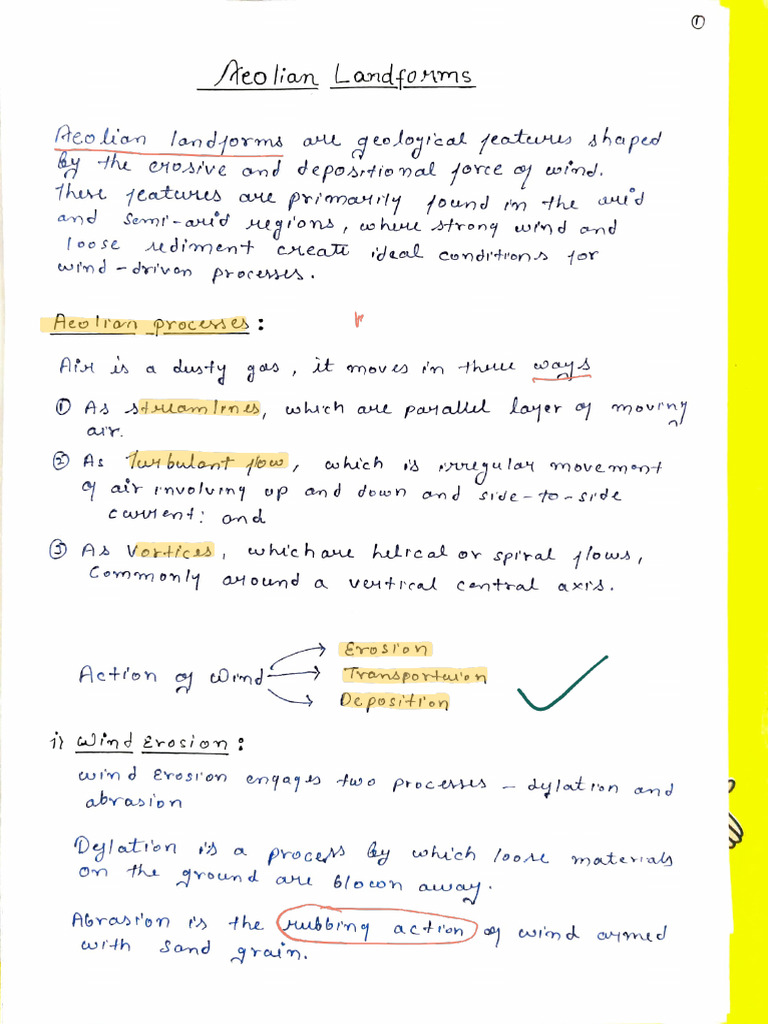 ①
Aeolian Landforms
Aeolian landforms are geological features shaped
by the erosive and depositional force of wind.
These features are primarily found in the arid
and semi-arid regions, where strong wind and
loose sediment create ideal conditions for
wind-driven processes.
Aeolian processes:
Air is a dusty gas, it moves in three ways
① As streamlines, which are parallel layer of moving
air.
② As Turbulant flow, which is irregular movement
of air involving up and down and side-to-side
current: and
③ As vortices, which are helical or spiral flows,
Commonly around a vertical central axis.
Erosion
Action of wind Transportation
Deposition
i) Wind Erosion:
Wind Erosion engages two processes - deflation and
abrasion
Deflation is a process by which loose materials
on the ground are blown away.
Abrasion is the rubbing action of wind armed
with sand grain.